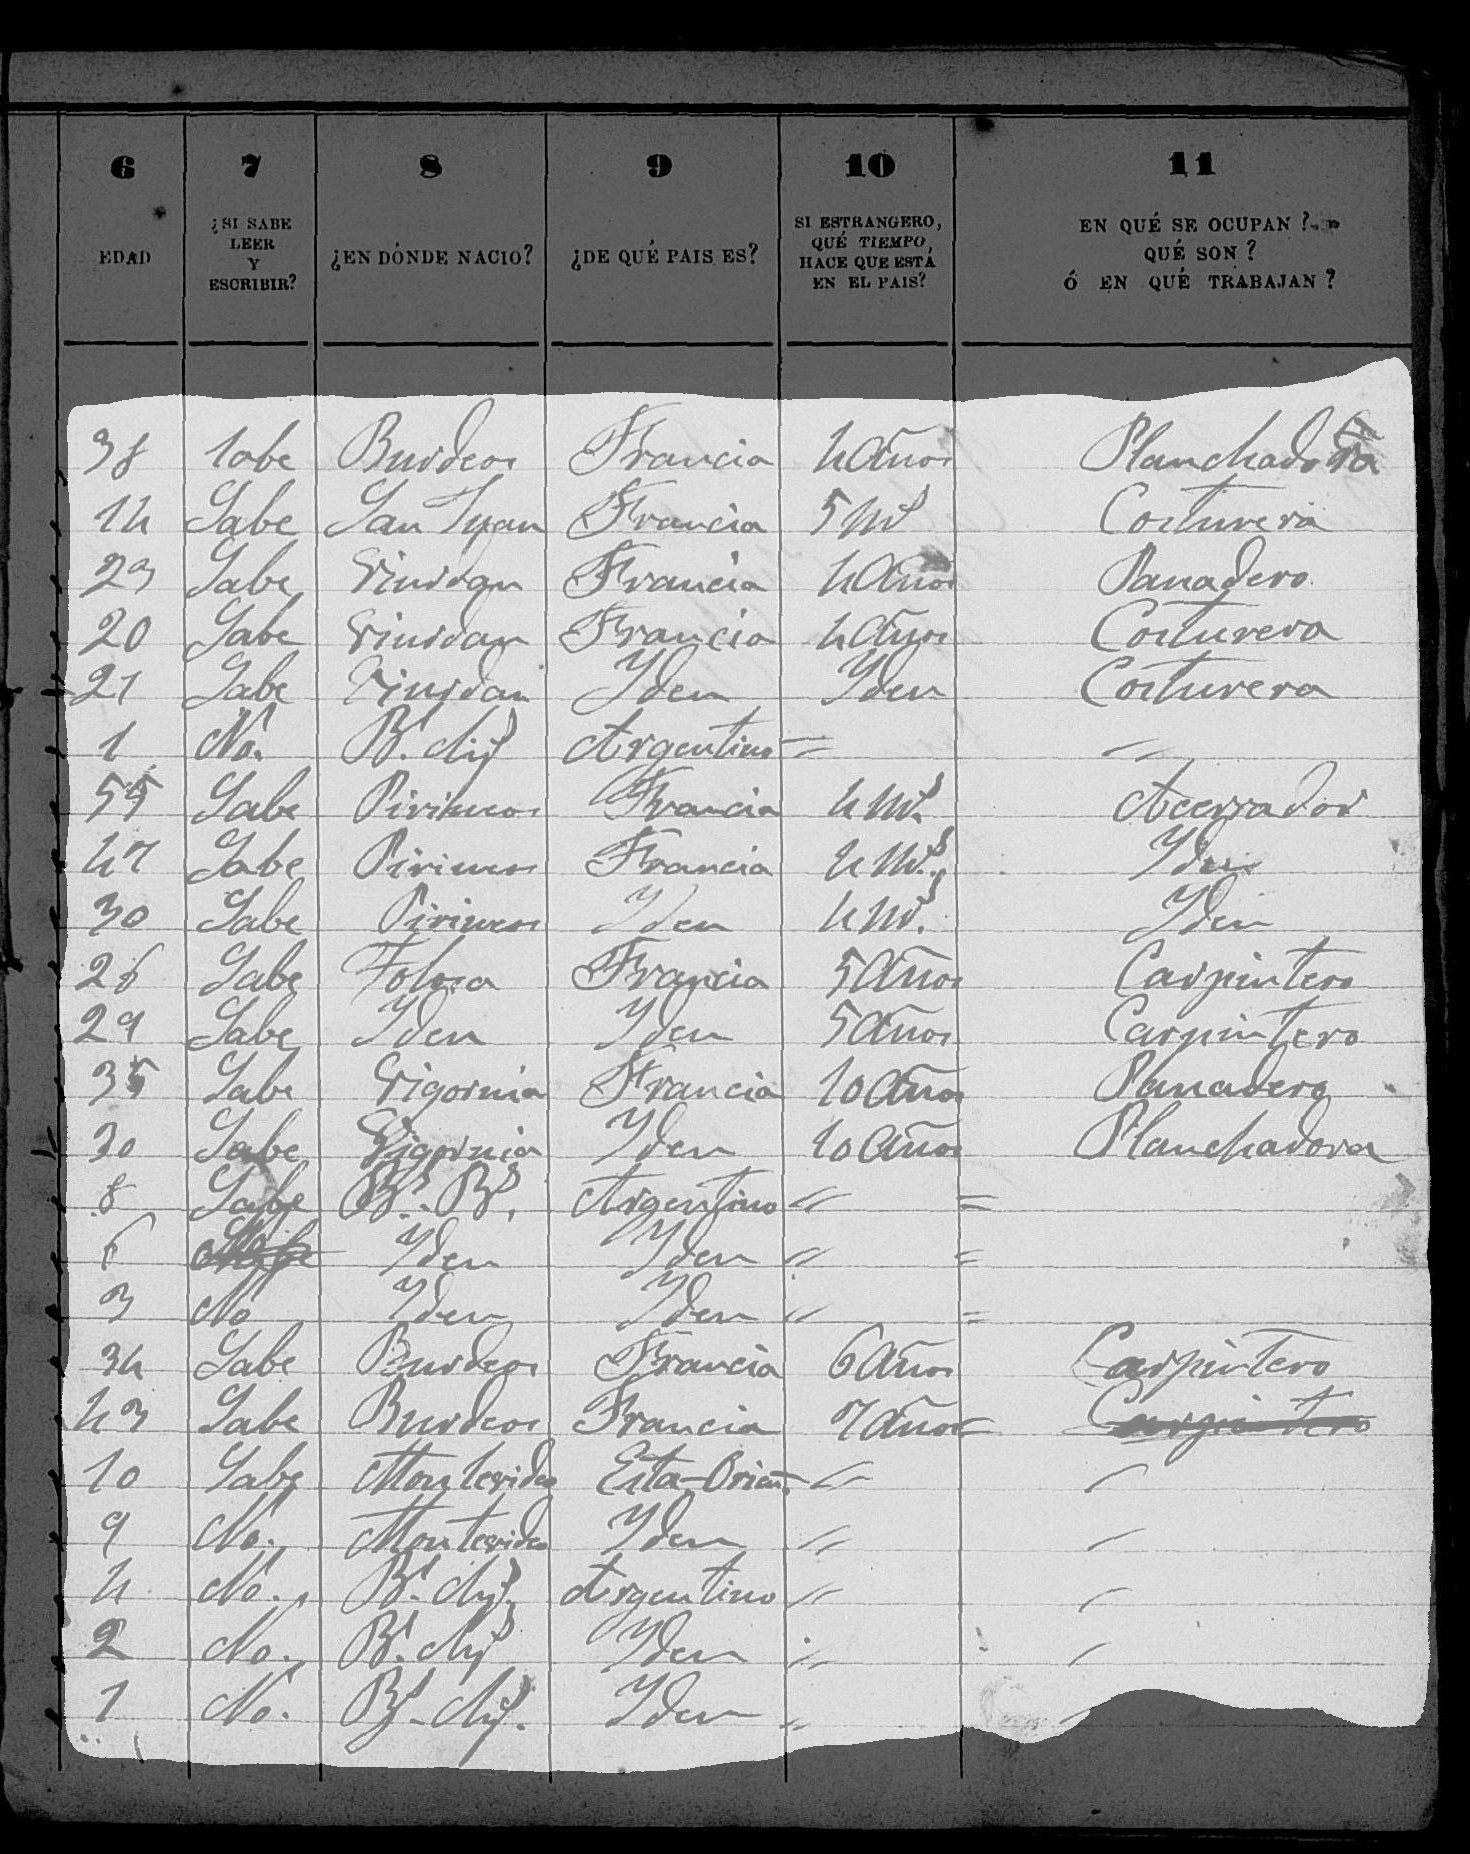 6 7 8 9 10 11
EDAD ¿SI SABE LEER Y ESCRIBIR? ¿EN DÓNDE NACIO? ¿DE QUÉ PAIS ES? SI ESTRANGERO, QUÉ TIEMPO, HACE QUE ESTÁ EN EL PAIS? EN QUÉ SE OCUPAN? QUÉ SON? Ó EN QUÉ TRABAJAN?
38 Sabe Burdeos Francia 4 Años Planchadora
14 Sabe San Juan Francia 5 Costurera
23 Sabe Francia 4 Años Panadero
20 Sabe Francia 4 Años Costurera
21 Sabe Yden Yden Costurera
1 No. Argentino = "
55 Sabe Pirineos Francia 4 Acerrador
47 Sabe Pirineos Francia 4 Yden
30 Sabe Pirineos Yden 4 Yden
26 Sabe Tolosa Francia 5 Años Carpintero
29 Sabe Yden Yden 5 Años Carpintero
35 Sabe Francia 10 Años Panadero
30 Sabe Yden 10 Años Planchadora
8 Sabe Bs. Bs. Argentino " =
6 Yden Yden " =
3 No Yden Yden " =
34 Sabe Burdeos Francia 6 Años Carpintero
43 Sabe Burdeos Francia 7 Años Carpintero
10 Sabe Montevideo Esta-Orien. "
9 No. Montevideo Yden "
4 No. Argentino "
2 No. Yden "
1 No. Yden "